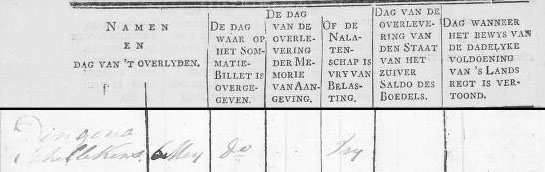 NAMEN
EN
DAG VAN 'T OVERLYDEN.
DE DAG
WAAR OP
HET SOM-
MATIE-
BILLET IS
OVERGE-
GEVEN.
DE DAG
VAN DE
OVERLE-
VERING
DER ME-
MORIE
VAN AAN-
GEVING.
OF DE
NALA-
TEN-
SCHAP IS
VRY VAN
BELAS-
TING.
DAG VAN DE
OVERLEVE-
RING VAN
DEN STAAT
VAN HET
ZUIVER
SALDO DES
BOEDELS.
DAG WANNEER
HET BEWYS VAN
DE DADELYKE
VOLDOENING
VAN 'S LANDS
REGT IS VER-
TOOND.
Dingena
Schellekens 6 Mey do vry